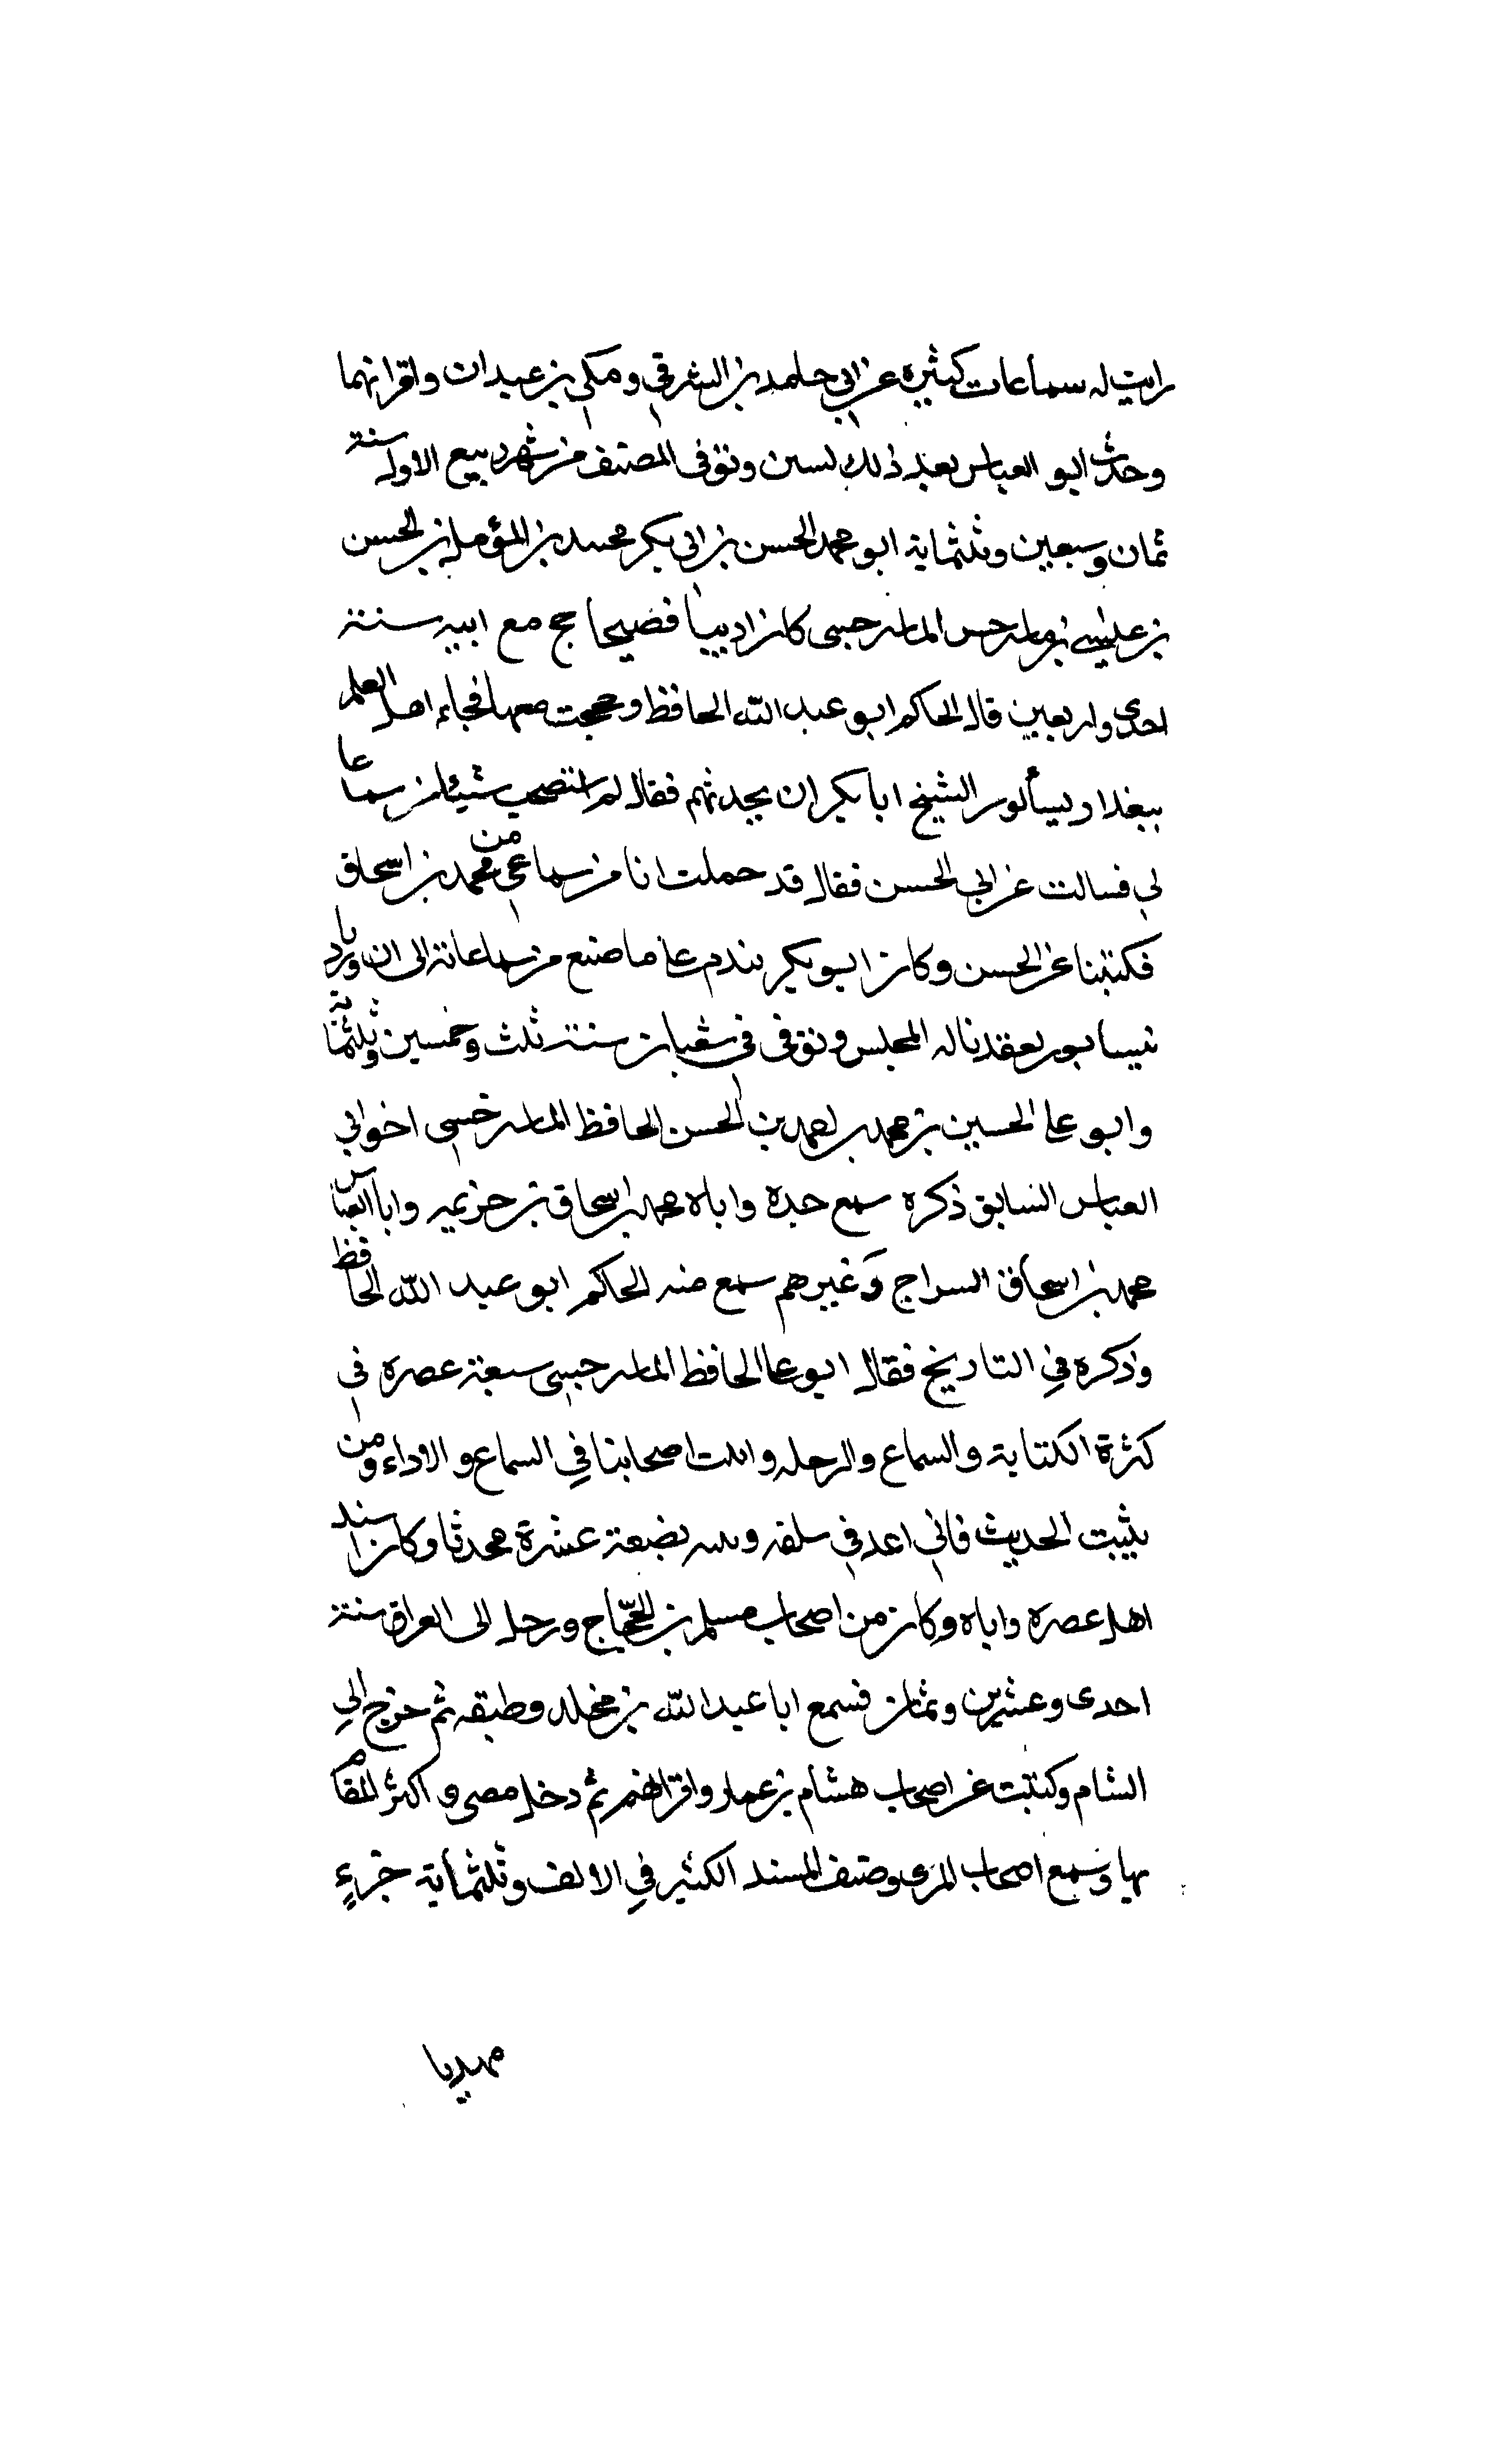 رايت له سماعات كثيرة عن ابي حامد بن الشرقي ومكي بن عبدان واقرانهما
وحدث ابو العباس بعد ذلك لسين وتوفى المصنف من شهر ربيع الاول سنة
ثمان وسبعين وثلثماية ابو محمد الحسن بن ابى بكر محمد بن المؤمل بن الحسن
بن عيسى بن ماسرجس الماسرجسى كان اديبا فصيحا حج مع ابيه سنة
احدى واربعين قال الحاكم ابو عبد الله الحافظ وحججت معهما فجاء اهل العلم
ببغداد ويسألون الشيخ ابا بكر ان يحدثهم فقال لم استصحب شيئا من سماعا
لي فسالت عن ابي الحسن فقال قد حملت انا من سماعي من محمد بن اسحاق
فكتبنا عن الحسن وكان ابو بكر يندم على ما ضيع من سماعاته الى ان ورد يا
نيسابور بعقدنا له المجلس وتوفى فى شعبان سنة ثلث وخمسين وثلثماية
وابو على الحسين بن محمد بن احمد بن الحسن الحافظ الماسرخسى اخو ابي
العباس السابق ذكره سمع جده واباه محمد بن اسحاق بن خزيمه وابا العباس
محمد بن اسحاق السراج وغيرهم سمع منه الحاكم ابو عبد الله الحافظ
وذكره في التاريخ فقال ابو على الحافظ الماسرجسى سفينة عصره فى
كثرة الكتابة والسماع والرحله واثبت اصحابنا في السماع والاداء ومن
بيت الحديث فاني اعد في سلفه وبيته بضعة عشرة محدثا وكان اسند
اهل عصره واباه وكان من اصحاب مسلم بن الحجّاج ورحل الى العراق سنة
احدى وعشرين وثمان فسمع ابا عبد الله بن مخلد وطبقه ثم خرج الي
الشام وكتبت عن اصحاب هشام بن عمار واقرانهم ثم دخل مصر واكثر المقام
بها وسمع اصحاب المزى وصنف المسند الكثير في الالف وثلثماية جزءٍ